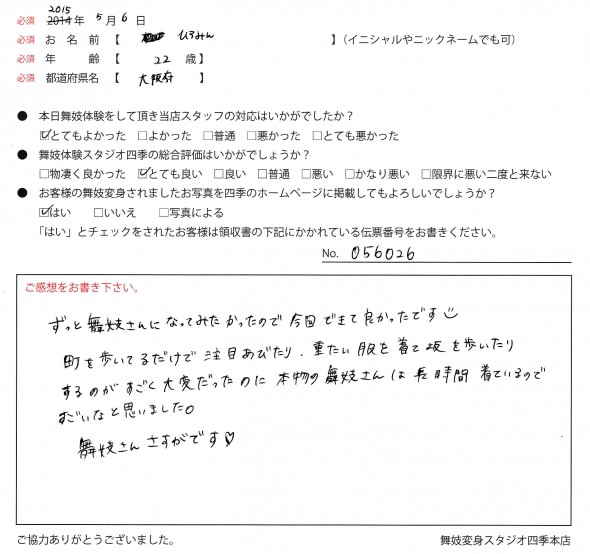 2015
必須 2014年 5月 6日
必須 お 名 前 【 ひろみん 】(イニシャルやニックネームでも可)
必須 年 齢 【 22 歳】
必須 都道府県名 【 大阪府 】
● 本日舞妓体験をして頂き当店スタッフの対応はいかがでしたか?
☑とてもよかった □よかった □普通 □悪かった □とても悪かった
● 舞妓体験スタジオ四季の総合評価はいかがでしょうか?
□物凄く良かった ☑とても良い □良い □普通 □悪い □かなり悪い □限界に悪い二度と来ない
● お客様の舞妓変身されましたお写真を四季のホームページに掲載してもよろしいでしょうか?
☑はい □いいえ □写真による
「はい」とチェックをされたお客様は領収書の下記にかかれている伝票番号をお書きください。
No. 056026
ご感想をお書き下さい。
ずっと舞妓さんになってみたかったので今回できて良かったです
町を歩いてるだけで注目あびたり、重たい服を着て坂を歩いたり
するのがすごく大変だったのに本物の舞妓さんは長時間着ているので
すごいなと思いました。
舞妓さんさすがです♡
ご協力ありがとうございました。
舞妓変身スタジオ四季本店